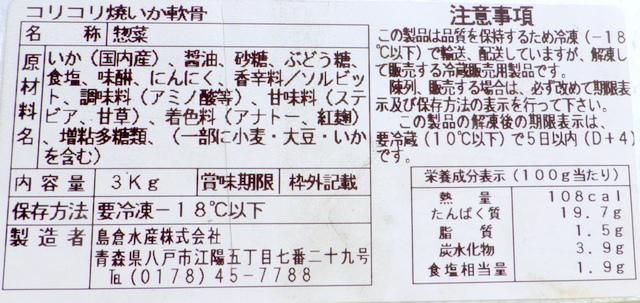 コリコリ焼いか軟骨
名称 惣菜
原材料名 いか(国内産)、醤油、砂糖、ぶどう糖、
食塩、味醂、にんにく、香辛料/ソルビッ
ト、調味料(アミノ酸等)、甘味料(ステ
ビア、甘草)、着色料(アナトー、紅麹)
、増粘多糖類、(一部に小麦・大豆・いか
を含む)
内容量 3Kg 賞味期限 枠外記載
保存方法 要冷凍-18℃以下
製造者 島倉水産株式会社
青森県八戸市江陽五丁目七番二十九号
℡(0178)45-7788
注意事項
この製品は品質を保持するため冷凍(-18
℃以下)で輸送、配送していますが、解凍し
て販売する冷蔵販売用製品です。
陳列、販売する場合は、必ず改めて期限表
示及び保存方法の表示を行って下さい。
この製品の解凍後の期限表示は、
要冷蔵(10℃以下)で5日以内(D+4)
です。
栄養成分表示(100g当たり)
熱量 108cal
たんぱく質 19.7g
脂質 1.5g
炭水化物 3.9g
食塩相当量 1.9g